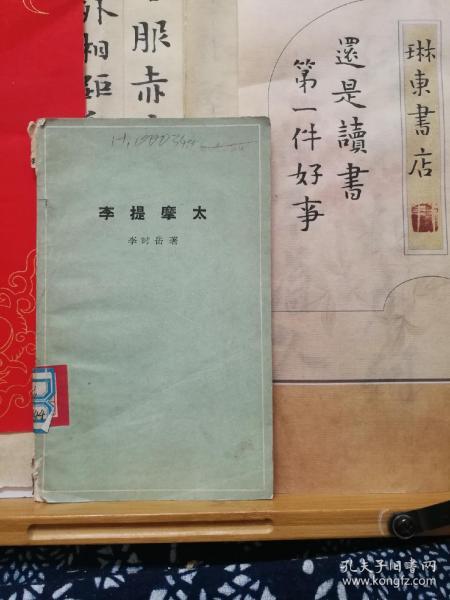 李提摩太
李时岳著
還是讀書
第一件好事
琳東書店
服赤
外相距
孔夫子旧书网
www.kongfz.com